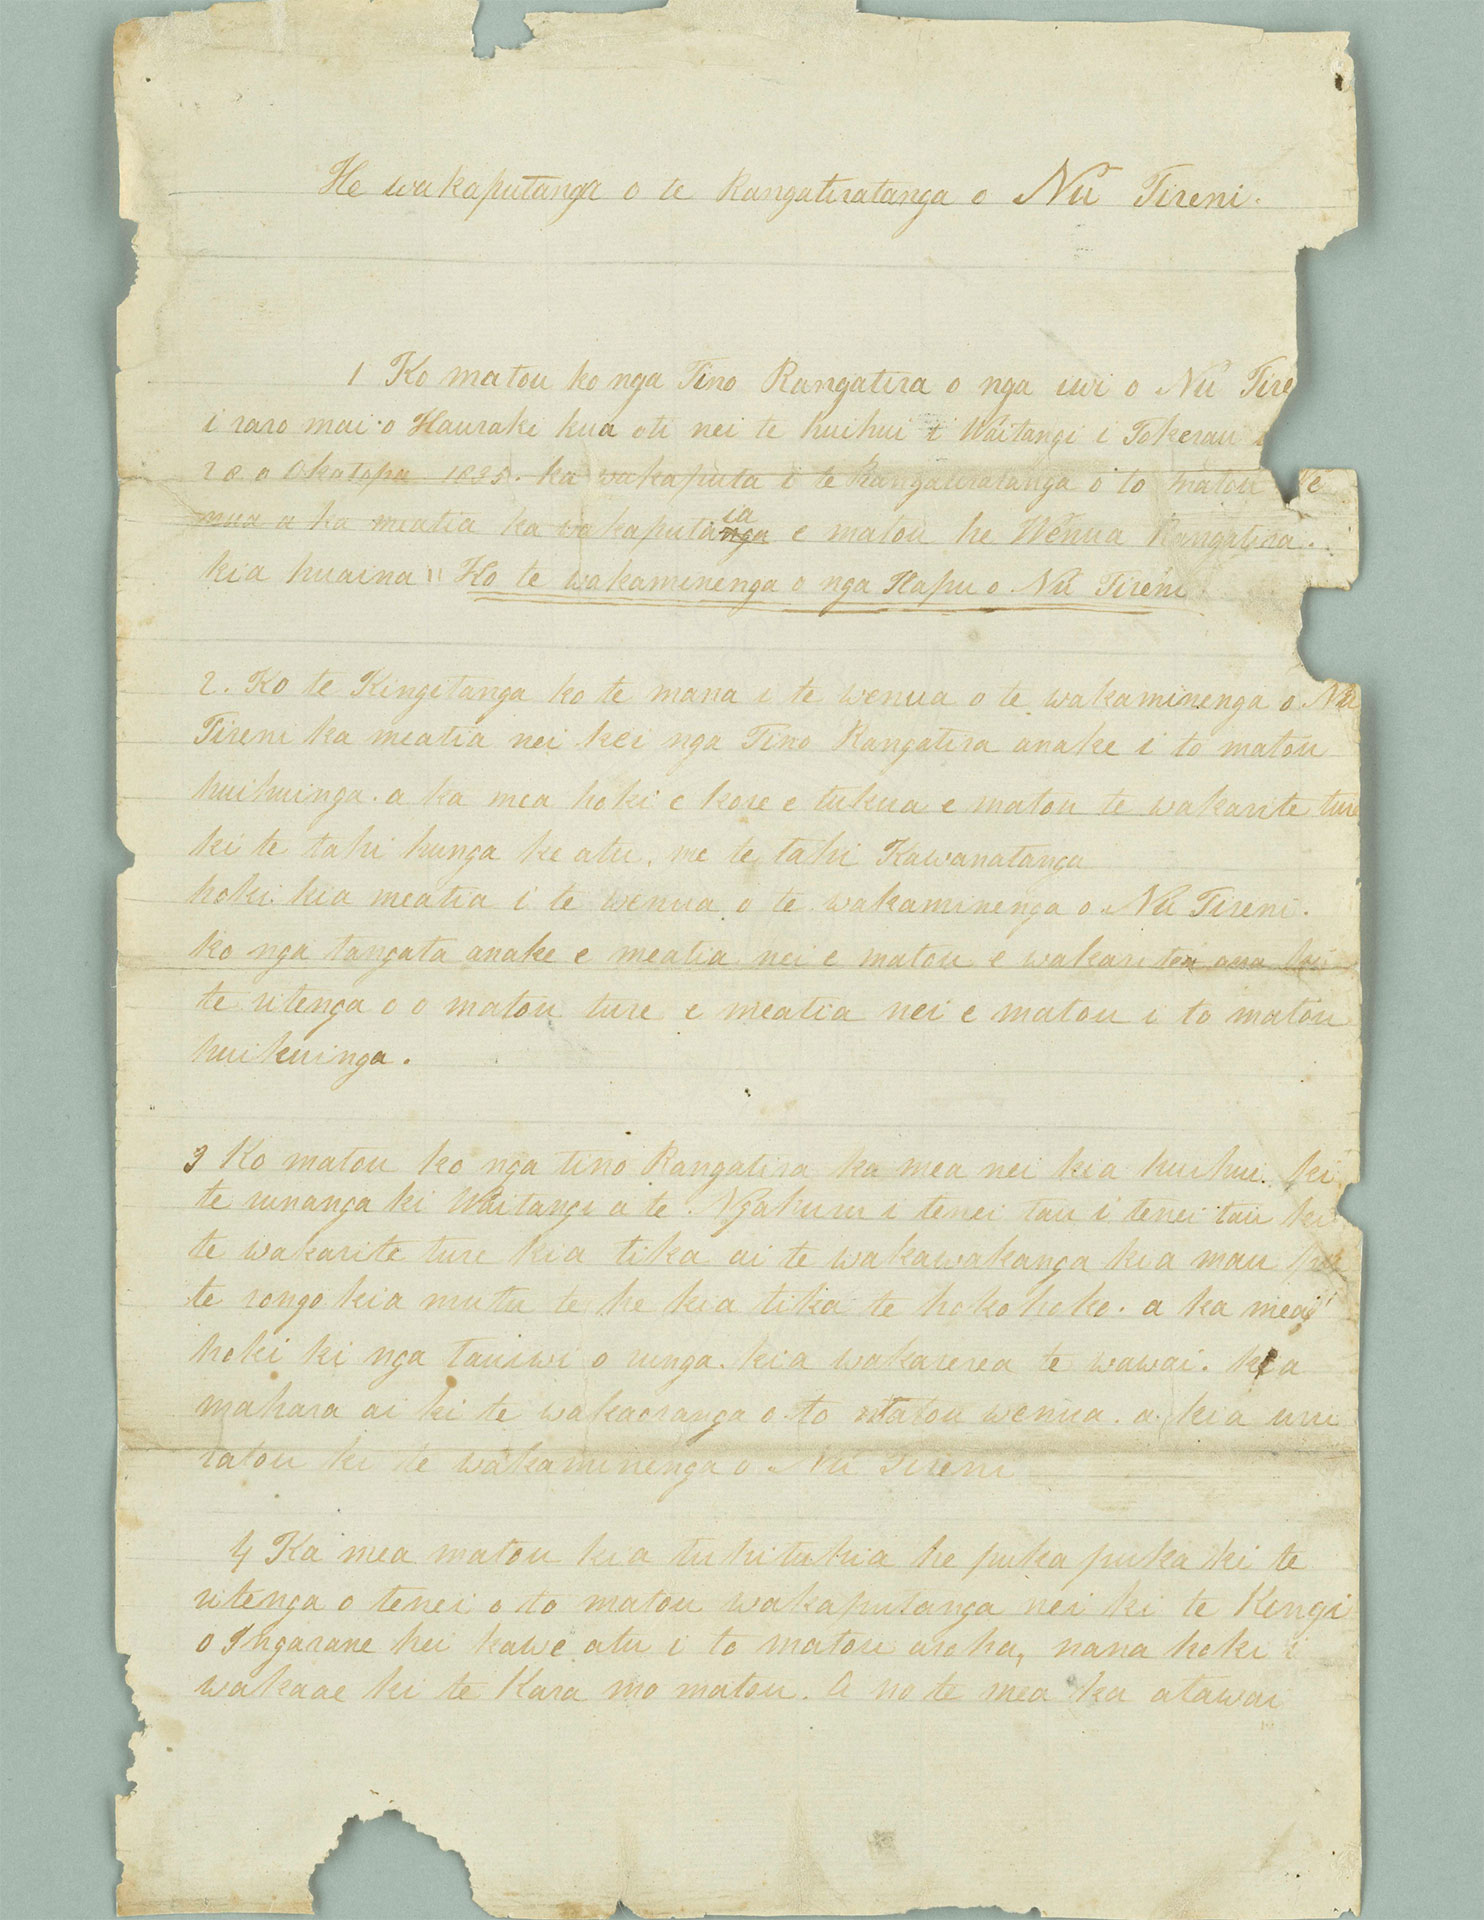 He wakaputanga o te Rangatiratanga o Nu Tireni.
1 Ko matou ko nga Tino Rangatira o nga iwi o Nu Tire
i raro mai o Hauraki kua oti nei te huihui i Waitangi i Tokerau
28 o Okatopa 1835. ka wakaputa i te Rangatiratanga o to matou we
nua a ka meatia ka wakaputaia nga e matou he Wenua Rangatira.
kia huaina "Ko te wakaminenga o nga Hapu o Nu Tireni
2. Ko te Kingitanga ko te mana i te wenua o te wakaminenga o Nu
Tireni ka meatia nei kei nga Tino Rangatira anake i to matou
huihuinga. a ka mea hoki e kore e tukua e matou te wakarite ture
ki te tahi hunga ke atu, me te tahi Kawanatanga
hoki kia meatia i te wenua o te wakaminenga o Nu Tireni.
ko nga tangata anake e meatia nei e matou e wakaritea ana ki
te ritenga o o matou ture e meatia nei e matou i to matou
huihuinga.
3 Ko matou ko nga tino Rangatira ka mea nei kia huihui ki
te runanga ki Waitangi a te Ngahuru i tenei tau i tenei tau ki
te wakarite ture kia tika ai te wakawakanga kia mau
te rongo kia mutu te he kia tika te hokohoko. a ka mea
hoki ki nga tauiwi o runga. kia wakarerea te wawai. kia
mahara ai ki te wakaoranga o to matou wenua. a kia uru
ratou ki te wakaminenga o Nu Tireni
4 Ka mea matou kia tuhituhia he pukapuka ki te
ritenga o tenei o to matou wakaputanga nei ki te Kingi
o Ingarane hei kawe atu i to matou aroha, nana hoki i
wakaae ki te Kara mo matou. A no te mea ka atawai